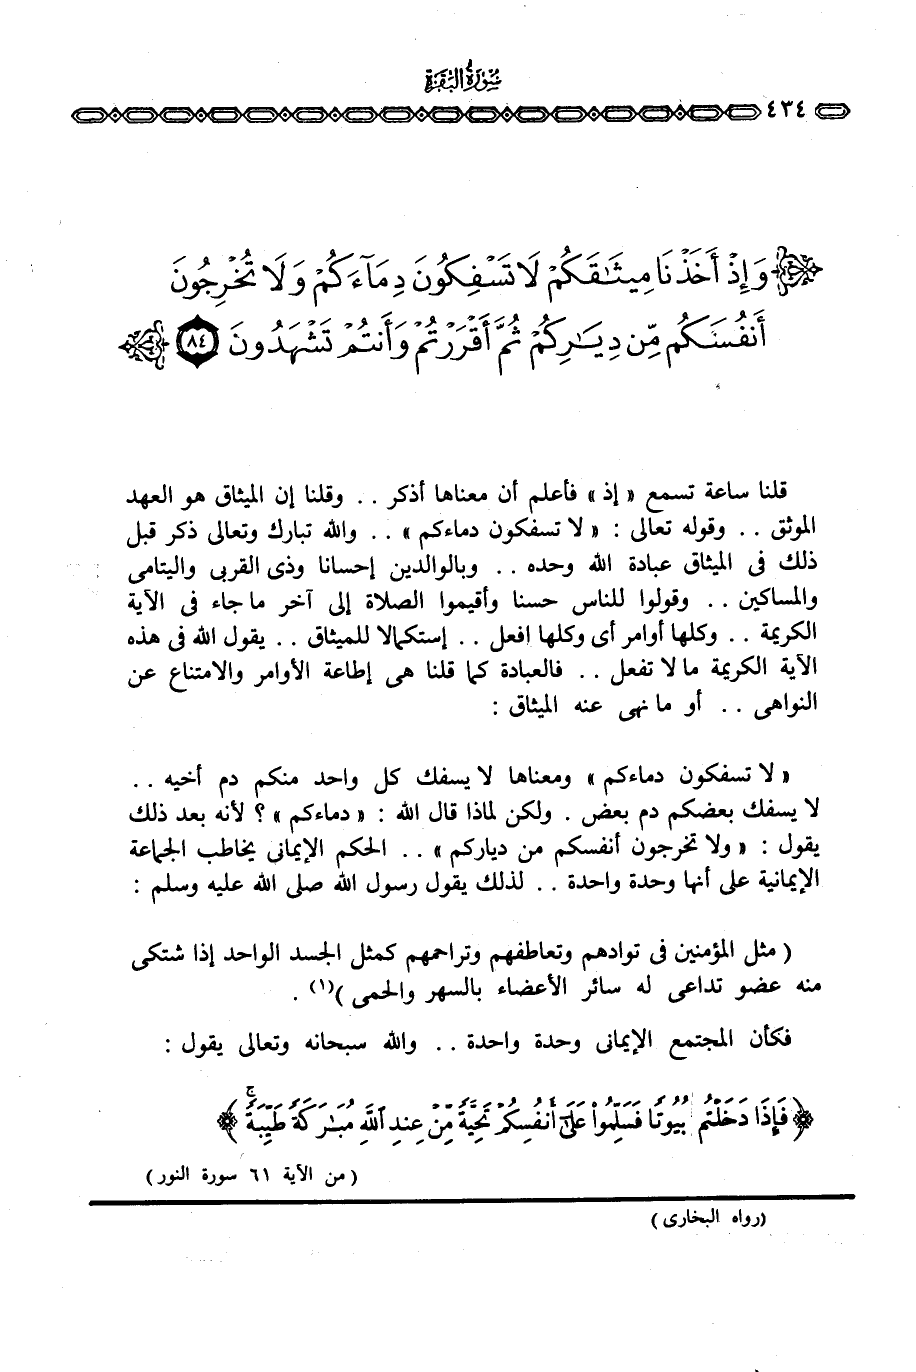 سورة البقرة
٤٣٤
وَإِذْ أَخَذْنَا مِيثَٰقَكُمْ لَا تَسْفِكُونَ دِمَآءَكُمْ وَلَا تُخْرِجُونَ
أَنفُسَكُم مِّن دِيَٰرِكُمْ ثُمَّ أَقْرَرْتُمْ وَأَنتُمْ تَشْهَدُونَ ٨٤
قلنا ساعة تسمع « إذ » فأعلم أن معناها أذكر .. وقلنا إن الميثاق هو العهد
الموثق .. وقوله تعالى : « لا تسفكون دماءكم » .. والله تبارك وتعالى ذكر قبل
ذلك فى الميثاق عبادة الله وحده .. وبالوالدين إحسانا وذى القربى واليتامى
والمساكين .. وقولوا للناس حسنا وأقيموا الصلاة إلى آخر ما جاء فى الآية
الكريمة .. وكلها أوامر أى وكلها افعل .. إستكمالا للميثاق .. يقول الله فى هذه
الآية الكريمة ما لا تفعل .. فالعبادة كما قلنا هى إطاعة الأوامر والامتناع عن
النواهى .. أو ما نهى عنه الميثاق :
« لا تسفكون دماءكم » ومعناها لا يسفك كل واحد منكم دم أخيه ..
لا يسفك بعضكم دم بعض . ولكن لماذا قال الله : « دماءكم » ؟ لأنه بعد ذلك
يقول : « ولا تخرجون أنفسكم من دياركم » .. الحكم الإيمانى يخاطب الجماعة
الإيمانية على أنها وحدة واحدة .. لذلك يقول رسول الله صلى الله عليه وسلم :
( مثل المؤمنين فى توادهم وتعاطفهم وتراحمهم كمثل الجسد الواحد إذا شتكى
منه عضو تداعى له سائر الأعضاء بالسهر والحمى )(١) .
فكأن المجتمع الإيمانى وحدة واحدة .. والله سبحانه وتعالى يقول :
﴿ فَإِذَا دَخَلْتُم بُيُوتًا فَسَلِّمُوا۟ عَلَىٰٓ أَنفُسِكُمْ تَحِيَّةً مِّنْ عِندِ ٱللَّهِ مُبَٰرَكَةً طَيِّبَةً ۚ ﴾
( من الآية ٦١ سورة النور )
(رواه البخارى)